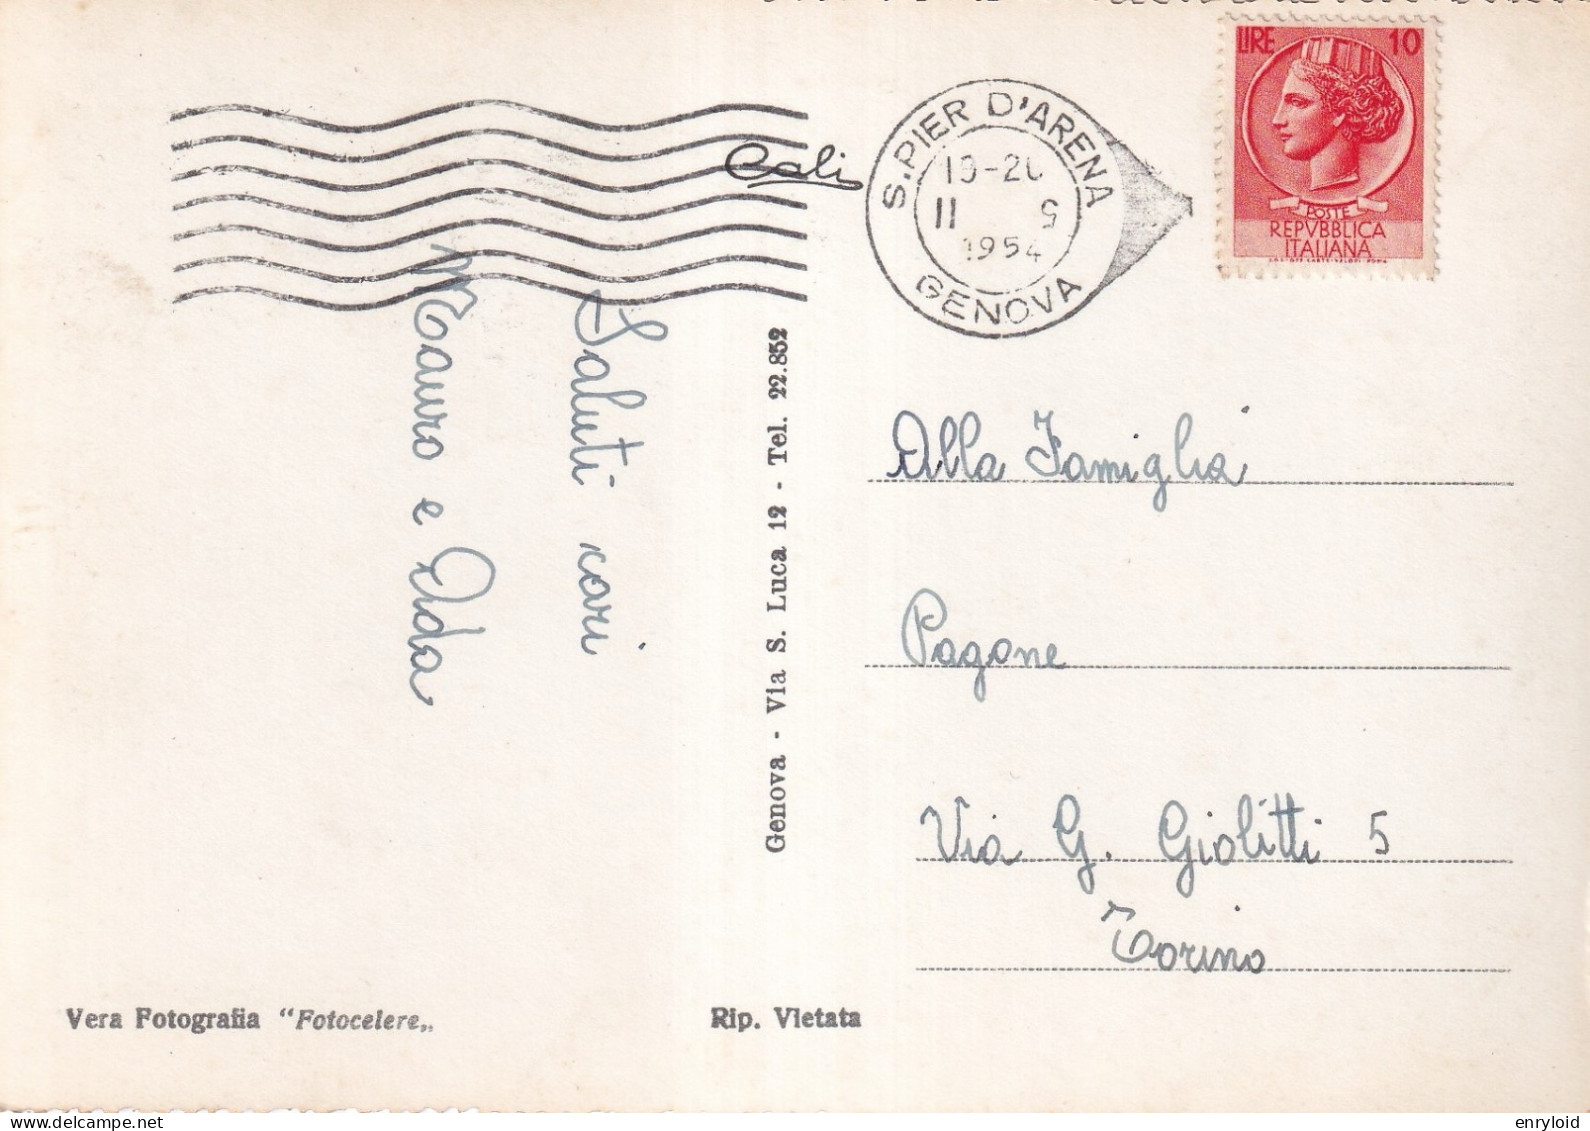 LIRE 10
POSTE
REPVBBLICA
ITALIANA
S. PIER D'ARENA
11 9
1954
GENOVA
Cali
Saluti cari
Mauro e Ada
Genova - Via S. Luca 12 - Tel. 22.852
Alla Famiglia
Pagone
Via G. Giolitti 5
Torino
Vera Fotografia "Fotocelere„
Rip. Vietata
enryloid